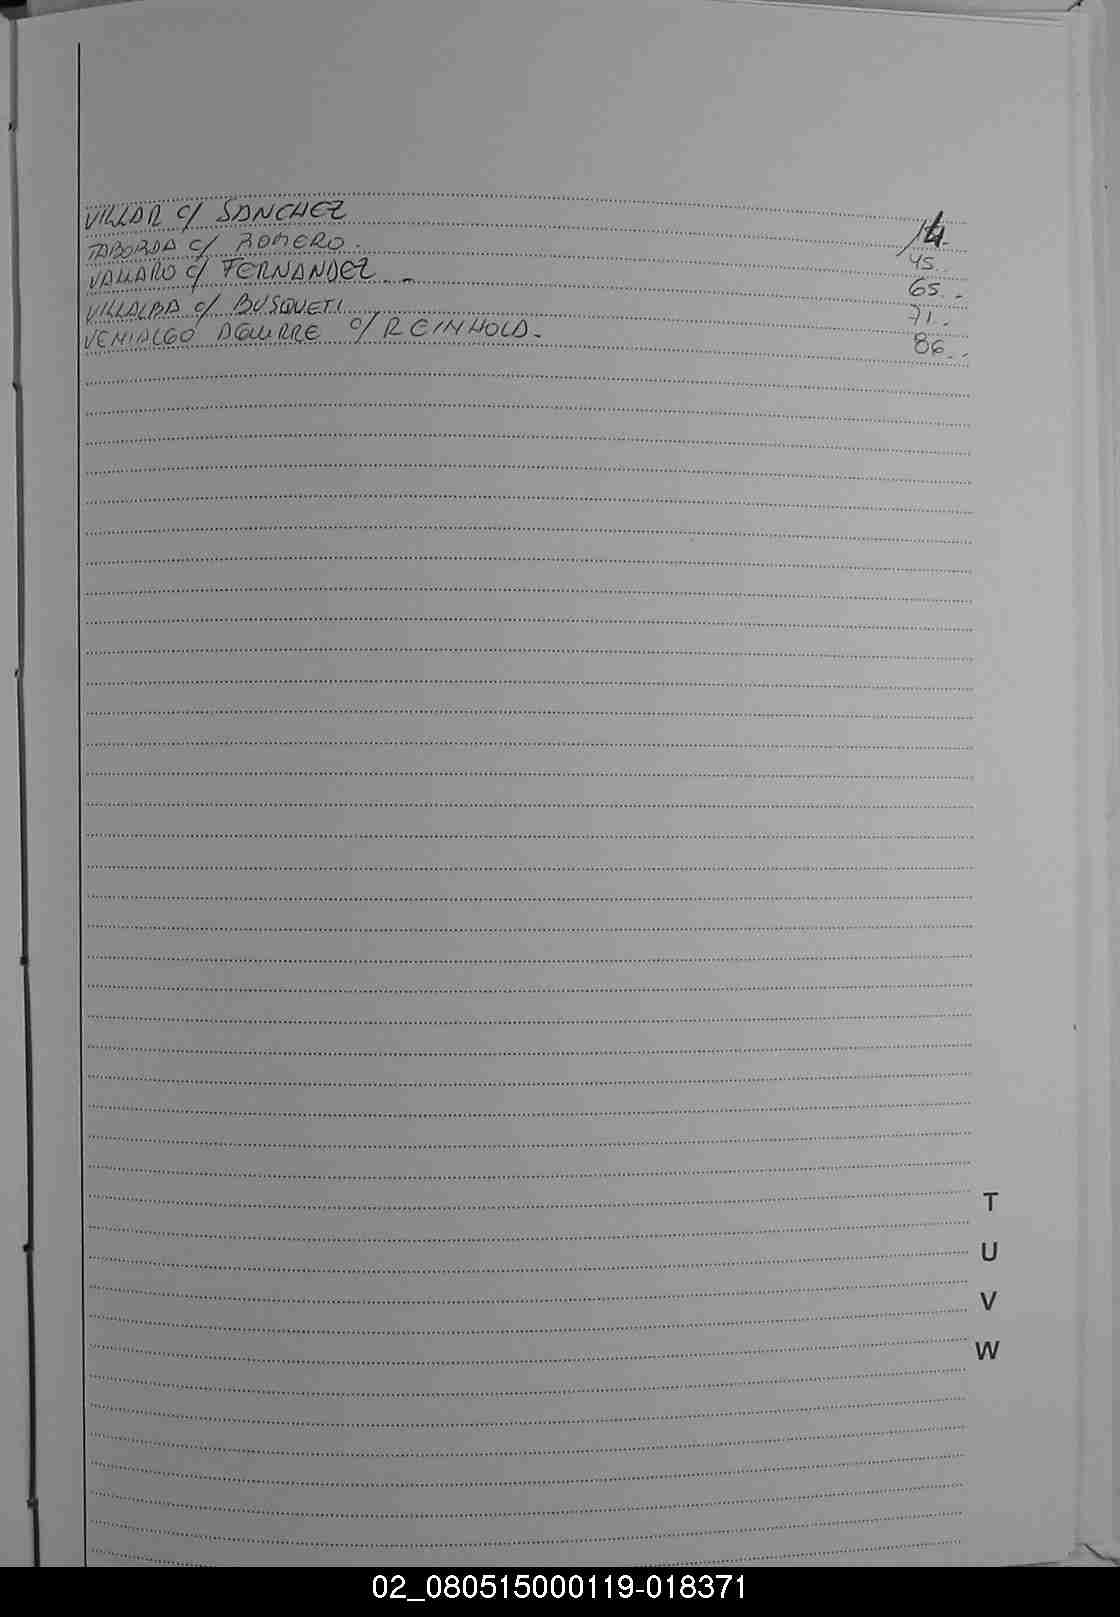 VILLAR c/ SANCHEZ 14.
TABORDA c/ ROMERO. 45..
VALLARO c/ FERNANDEZ.. 65..
VILLALBA c/ BUSQUETI 71..
VENIALGO AGUIRRE c/ REINHOLD. 86..
T
U
V
W
02_080515000119-018371